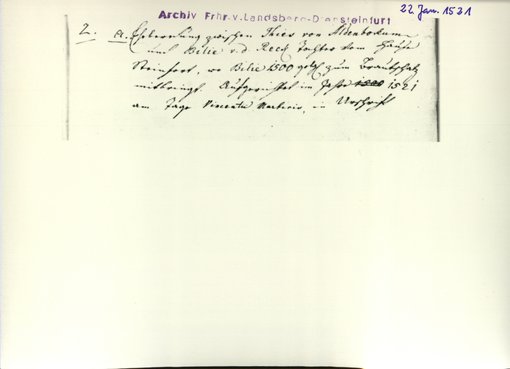 Archiv Frhr.v.Landsberg-Drensteinfurt
22. Jan. 1531
2. a. Eheberedung zwischen Thies von Aldenbockum
und Bilie v.d. Reck Tochter vom Hause
Steinfort, wo Bilie 1500 zum Brautschatz
mitbringt. Aufgerichtet im Jahr 1500 1521
am Tage Vincentii Martiris, in Urschrift